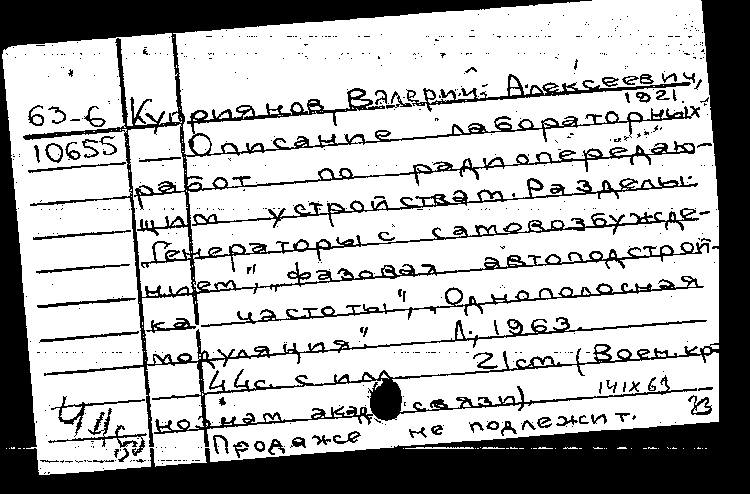 63-6 Куприянов, Валерий Алексеевич,
1921
10655 Описание лабораторных
работ по радиопередаю-
щим устройствам. Разделы:
„Генераторы с самовозбужде-
нием", „фазовая автоподстрой-
ка частоты", „Однополосная
модуляция". Л., 1963.
44с. с илл. 21см. (Воен. кр-
нознам. акад. связи).
Продаже не подлежит.